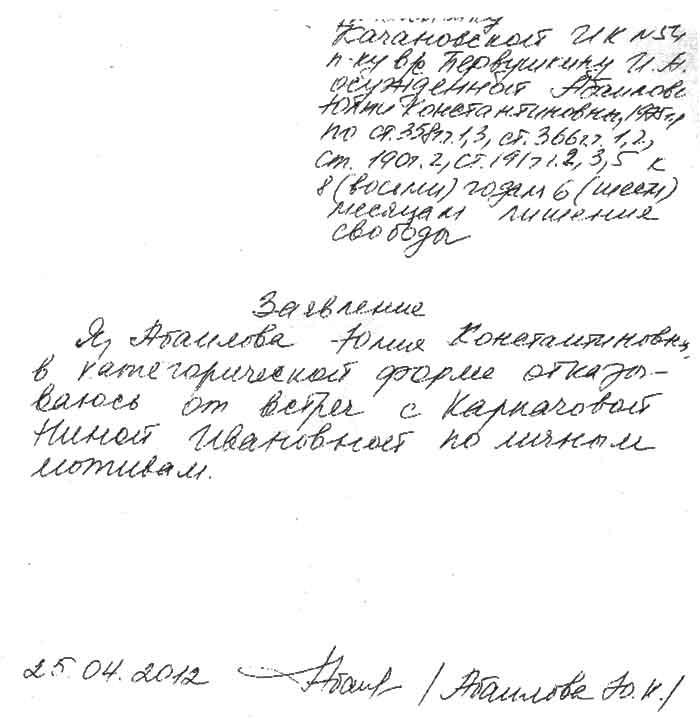 Качановской ИК №54
п-ку в/с Первушкину И.А.
осужденной Абаилово
Юлии Константиновны, 1975 г.р
по ст. 358 ч. 1,3, ст. 366 ч. 1, 2,
ст. 190 ч. 2, ст. 191 ч. 1. 2, 3, 5 к
8 (восьми) годам 6 (шести)
месяцам лишения
свободы
Заявление
Я, Абаилова Юлия Константиновна,
в категорической форме отказы-
ваюсь от встреч с Карпачовой
Ниной Ивановной по личным
мотивам.
25.04.2012 / Абаилова Ю.К./